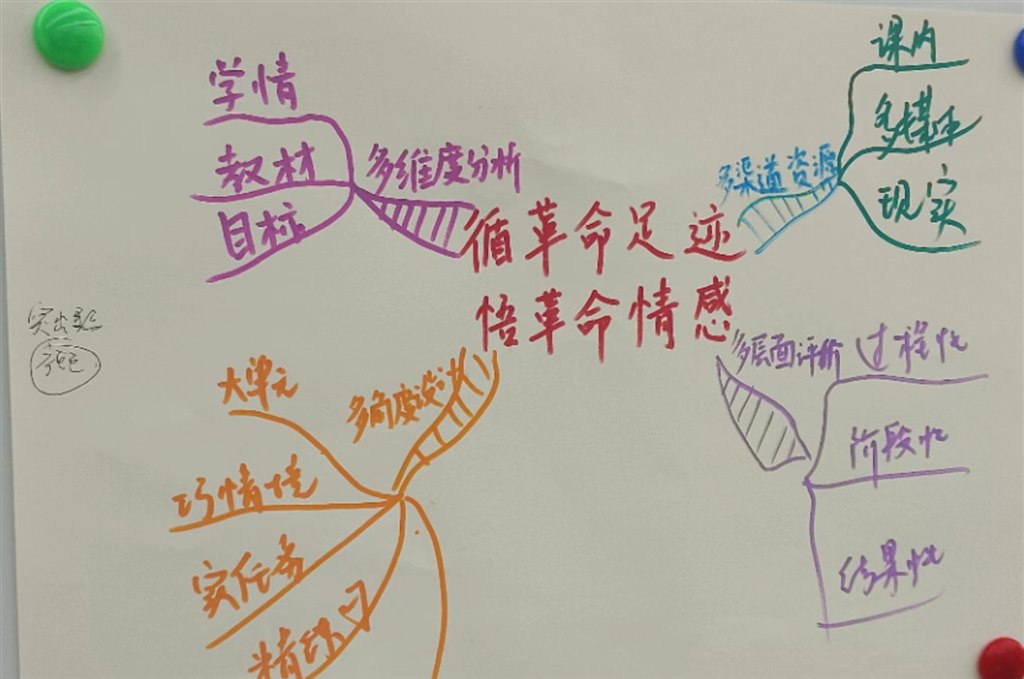 循革命足迹
悟革命情感
多维度分析
学情
教材
目标
多渠道资源
课内
多媒体
现实
多层面评价
过程性
阶段性
结果性
多角度设计
大单元
巧情境
实任务
精练习
突出